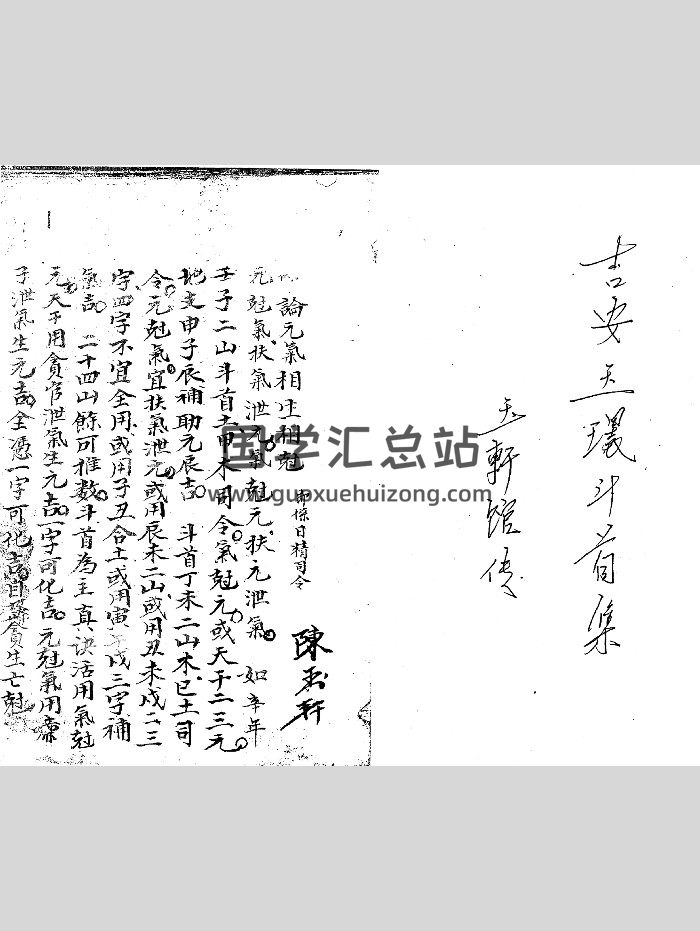 吉安王環斗首集
玉軒館传
論元氣相生相剋
即係日精司令
陳玉軒
元尅氣扶氣泄元氣尅元扶元泄氣 如辛年
壬子二山斗首土甲木司令氣尅元或天干二三元
地支申子辰補助元辰吉 斗首丁未二山木己土司
令元尅氣宜扶氣泄元或用辰未二山或用丑未戌二三
字四字不宜全用或用子丑合土或用寅午戌三字補
氣吉 二十四山餘可推数斗首為主真诀活用氣尅
元天干用貪官泄氣生元吉一字可化吉元尅氣用廉
子泄氣生元吉全憑一字可化吉自武貪生亡尅
国学汇总站
www.guoxuehuizong.com